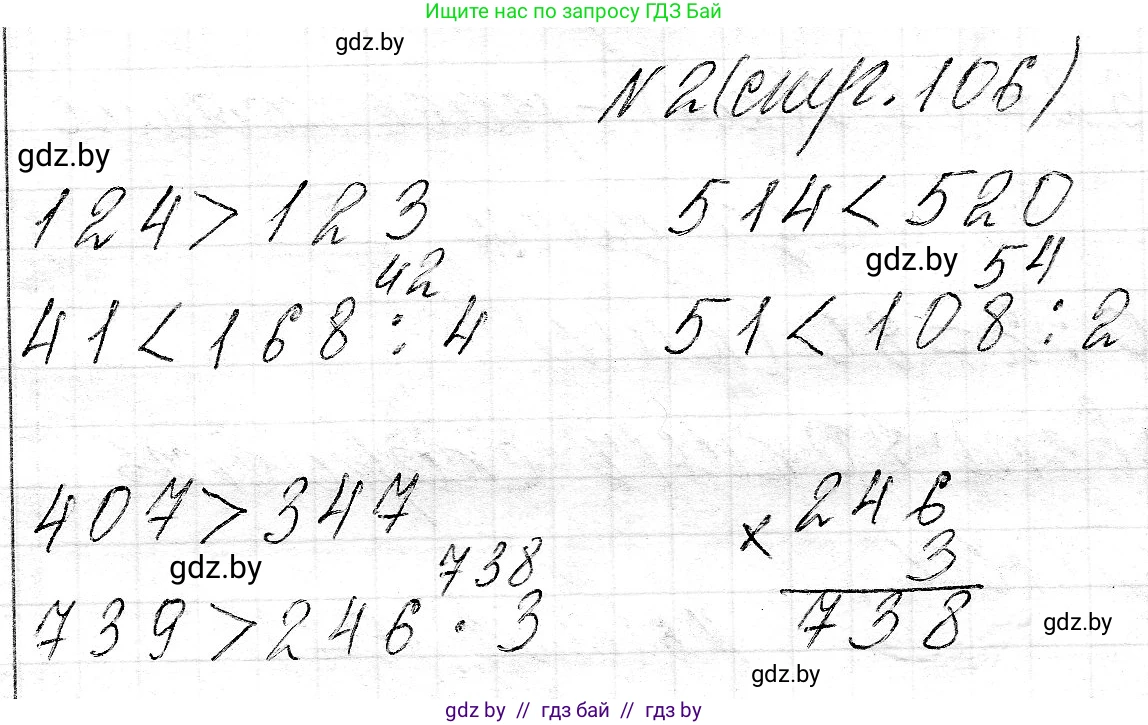 Ищите нас по запросу ГДЗ Бай
gdz.by
N 2 (стр. 106)
gdz.by
124 > 123
514 < 520
gdz.by
42
54
41 < 168 : 4
51 < 108 : 2
407 > 347
246
× 3
738
gdz.by
738
739 > 246 · 3
gdz.by
gdz.by
gdz by // гдз бай // гдз by